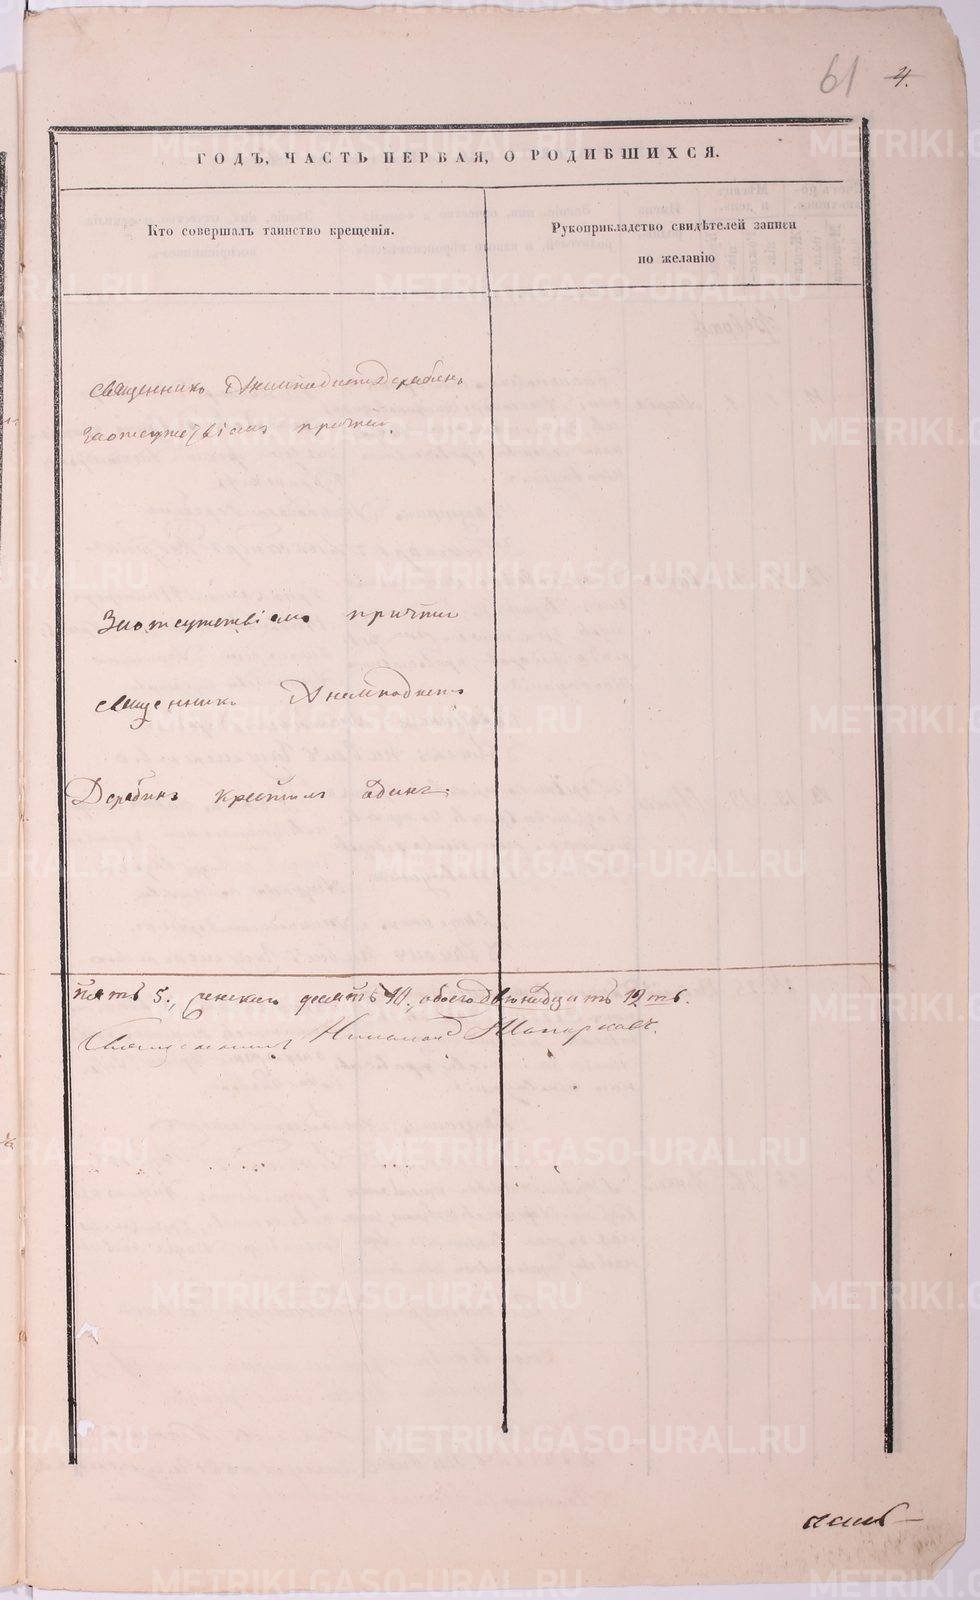 61 4.
ГОДЪ, ЧАСТЬ ПЕРВАЯ, О РОДИВШИХСЯ.
Кто совершалъ таинство крещенія.
Рукоприкладство свидѣтелей записи
по желанію
священникъ Анемподистъ Дерябинъ
заотсутствіемъ причта.
Заотсутствіемъ причта
священникъ Анемподистъ
Дерябинъ крестилъ одинъ.
пять 5., женскаго десять 10., обоего двенадцать 12ть.
Священникъ
METRIKI.GASO-URAL.RU